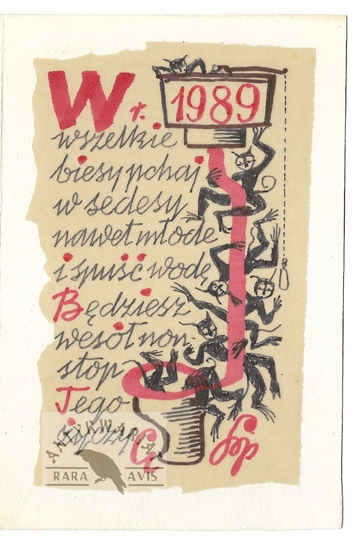 W r. 1989
wszelkie
biesy pchaj
w sedesy
nawet młode
i spuść wodę
Będziesz
wesół non
stop
Tego
życzy Ci
ANTYKWARIAT
RARA AVIS